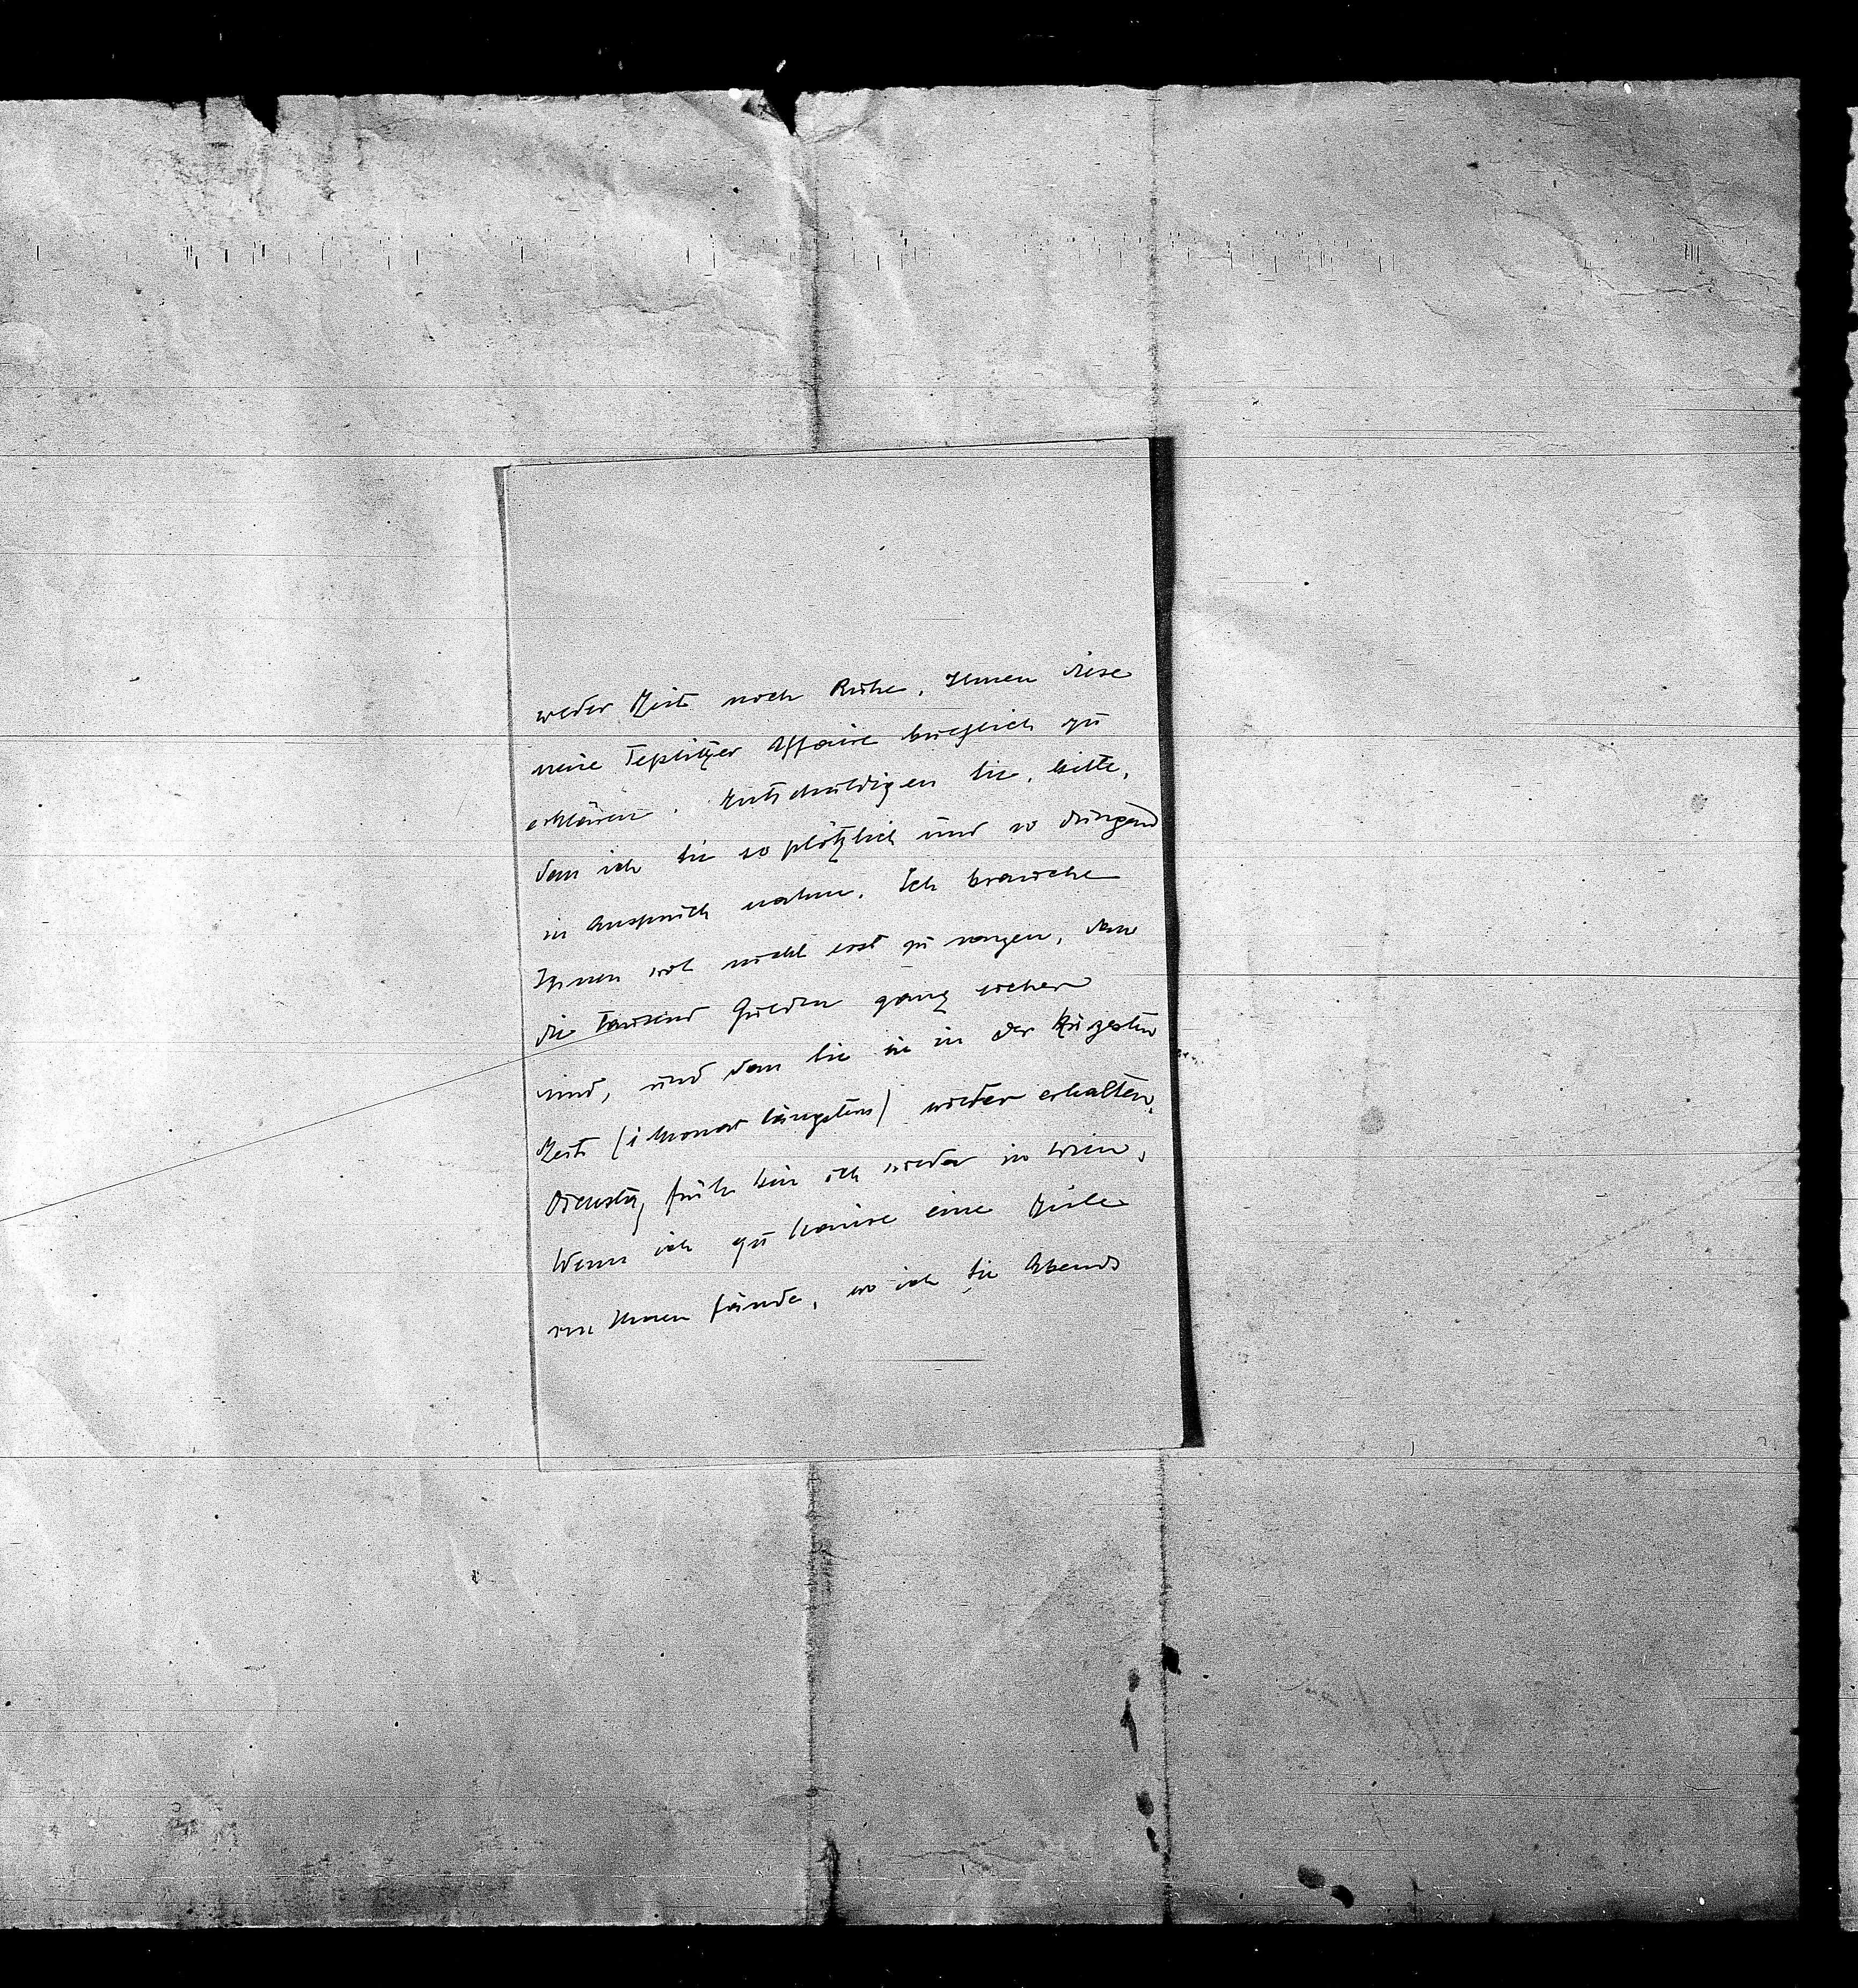 weder Zeit noch Ruhe, Ihnen diese
meine Teplitzer Affaire brieflich zu
erklären. Entschuldigen Sie, bitte,
dass ich Sie so plötzlich und so dringend
in Anspruch nahm. Ich brauche
Ihnen wol nicht erst zu sagen, dass
die tausend Gulden ganz sicher
sind, und dass Sie sie in der kürzesten
Zeit (1 Monat längstens) wieder erhalten.
Dienstag früh bin ich wieder in Wien.
Wenn ich zu Hause eine Zeile
von Ihnen fände, wo ich Sie Abends